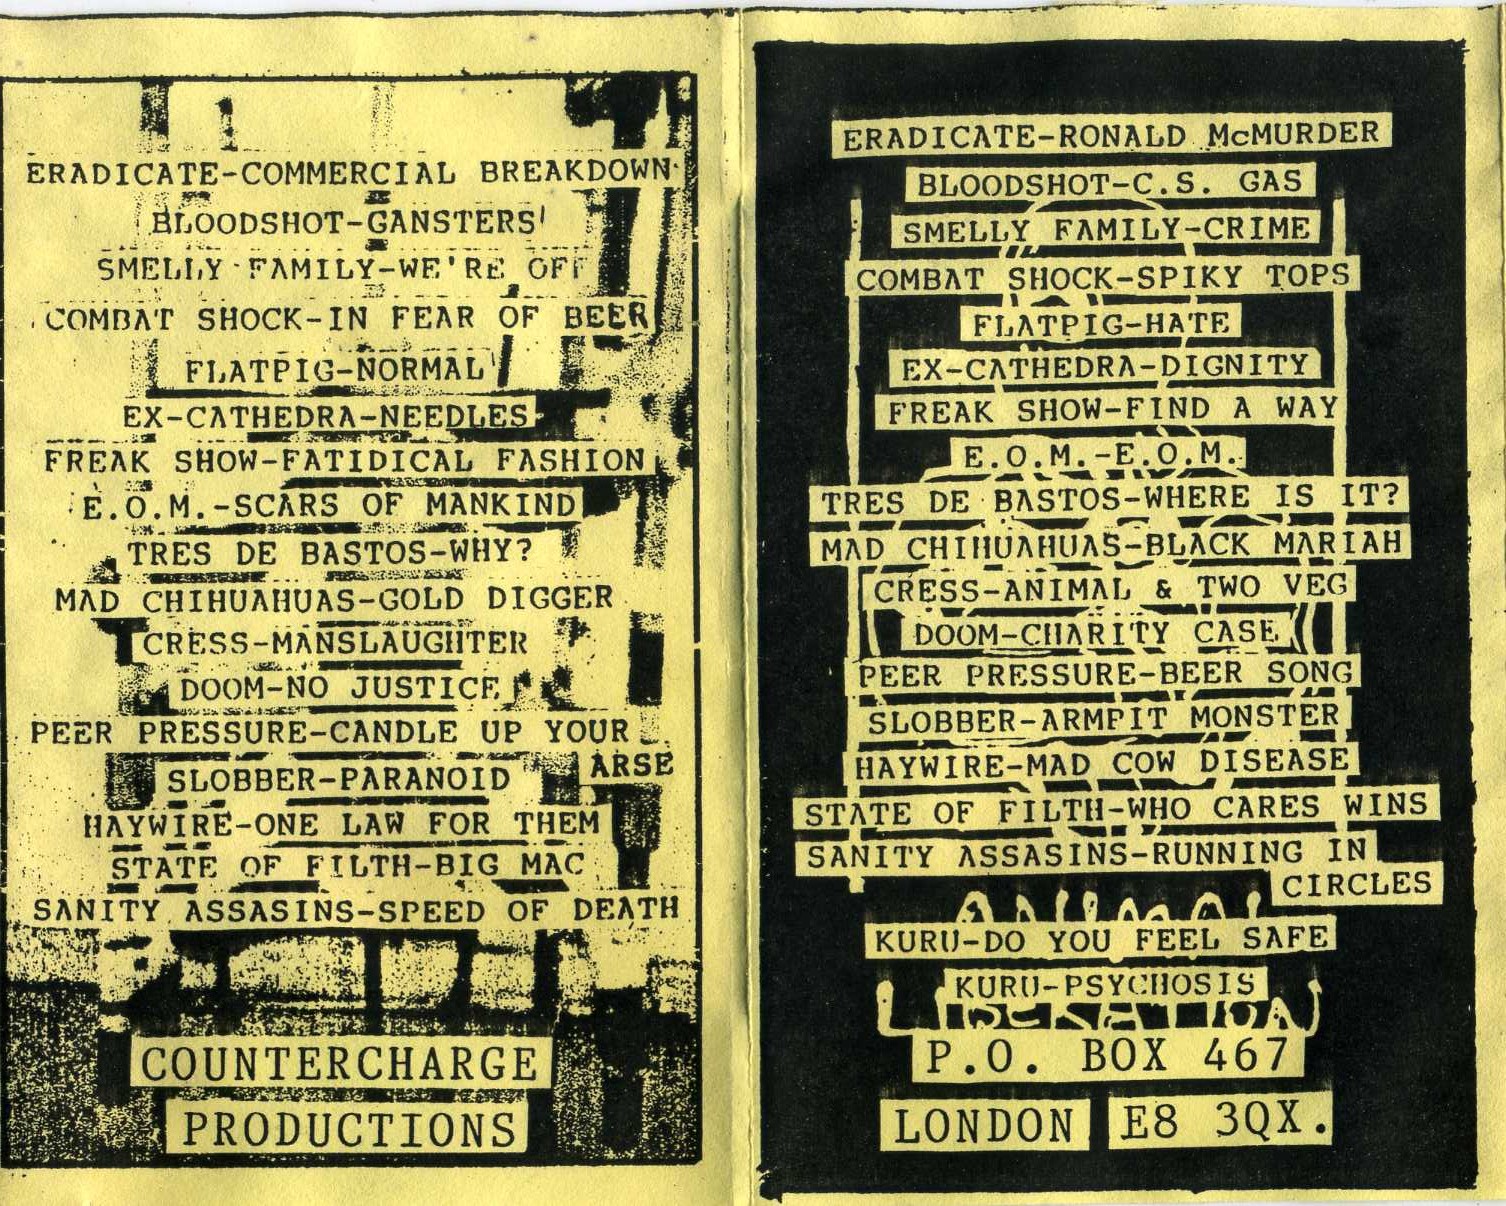 ERADICATE-COMMERCIAL BREAKDOWN
BLOODSHOT-GANSTERS
SMELLY FAMILY-WE'RE OFF
COMBAT SHOCK-IN FEAR OF BEER
FLATPIG-NORMAL
EX-CATHEDRA-NEEDLES
FREAK SHOW-FATIDICAL FASHION
E.O.M.-SCARS OF MANKIND
TRES DE BASTOS-WHY?
MAD CHIHUAHUAS-GOLD DIGGER
CRESS-MANSLAUGHTER
DOOM-NO JUSTICE
PEER PRESSURE-CANDLE UP YOUR
ARSE
SLOBBER-PARANOID
HAYWIRE-ONE LAW FOR THEM
STATE OF FILTH-BIG MAC
SANITY ASSASINS-SPEED OF DEATH
COUNTERCHARGE
PRODUCTIONS
ERADICATE-RONALD McMURDER
BLOODSHOT-C.S. GAS
SMELLY FAMILY-CRIME
COMBAT SHOCK-SPIKY TOPS
FLATPIG-HATE
EX-CATHEDRA-DIGNITY
FREAK SHOW-FIND A WAY
E.O.M.-E.O.M.
TRES DE BASTOS-WHERE IS IT?
MAD CHIHUAHUAS-BLACK MARIAH
CRESS-ANIMAL & TWO VEG
DOOM-CHARITY CASE
PEER PRESSURE-BEER SONG
SLOBBER-ARMPIT MONSTER
HAYWIRE-MAD COW DISEASE
STATE OF FILTH-WHO CARES WINS
SANITY ASSASINS-RUNNING IN
CIRCLES
KURU-DO YOU FEEL SAFE
KURU-PSYCHOSIS
P.O. BOX 467
LONDON E8 3QX.